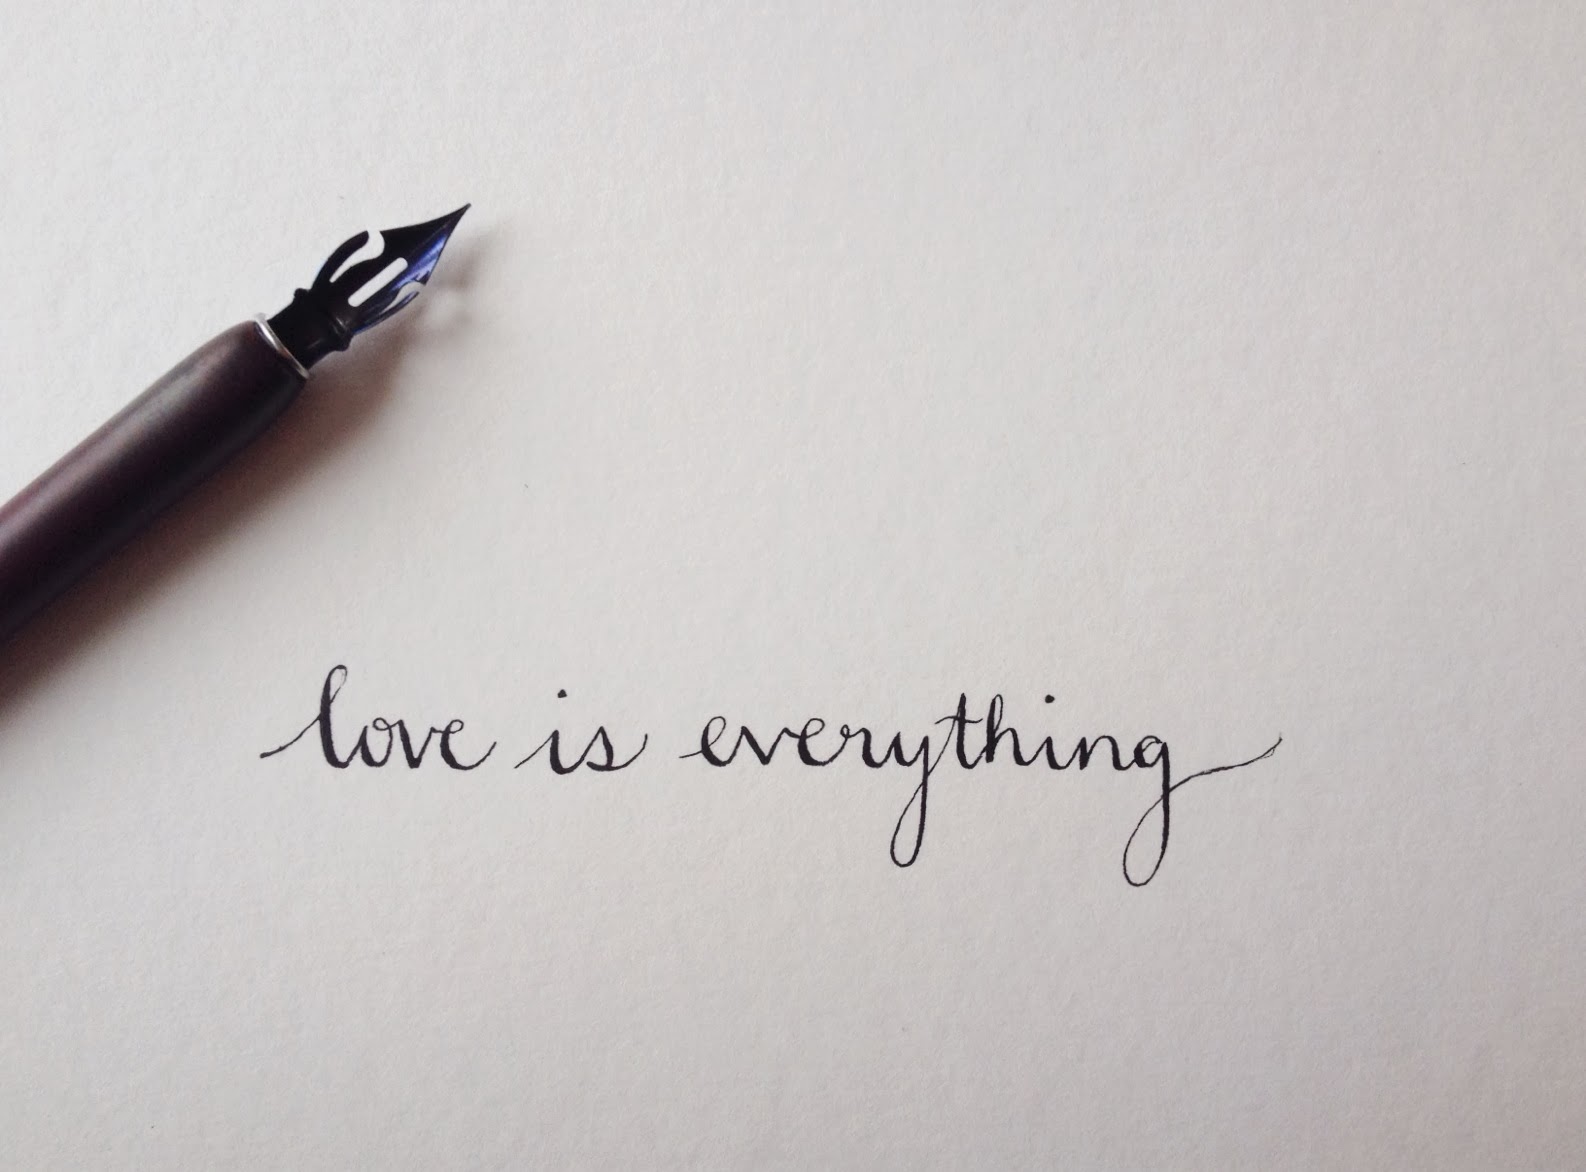 love is everything